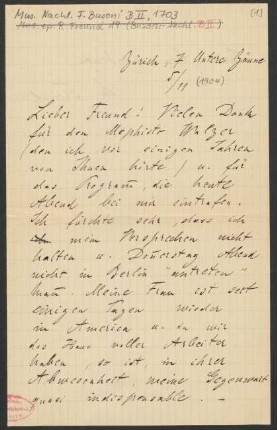 Mus. Nachl. F. Busoni B II, 1703
[1]
Mus. ep. R. Freund 19 (Busoni-Nachl. B II)
Zürich, 7 Untere Zäune
5/11 (1904)
Lieber Freund! Vielen Dank
für den Mephisto Walzer
(den ich vor einigen Jahren
von Ihnen hörte) u. für
das Program, die heute
Abend bei mir eintrafen.
Ich fürchte sehr, dass ich
mein Versprechen nicht
halten u. Donnerstag Abend
nicht in Berlin "antreten"
kann. Meine Frau ist seit
einigen Tagen wieder
in America u. da wir
das Haus voller Arbeiter
haben, so ist, in ihrer
Abwesenheit, meine Gegenwart
quasi indispensable. —